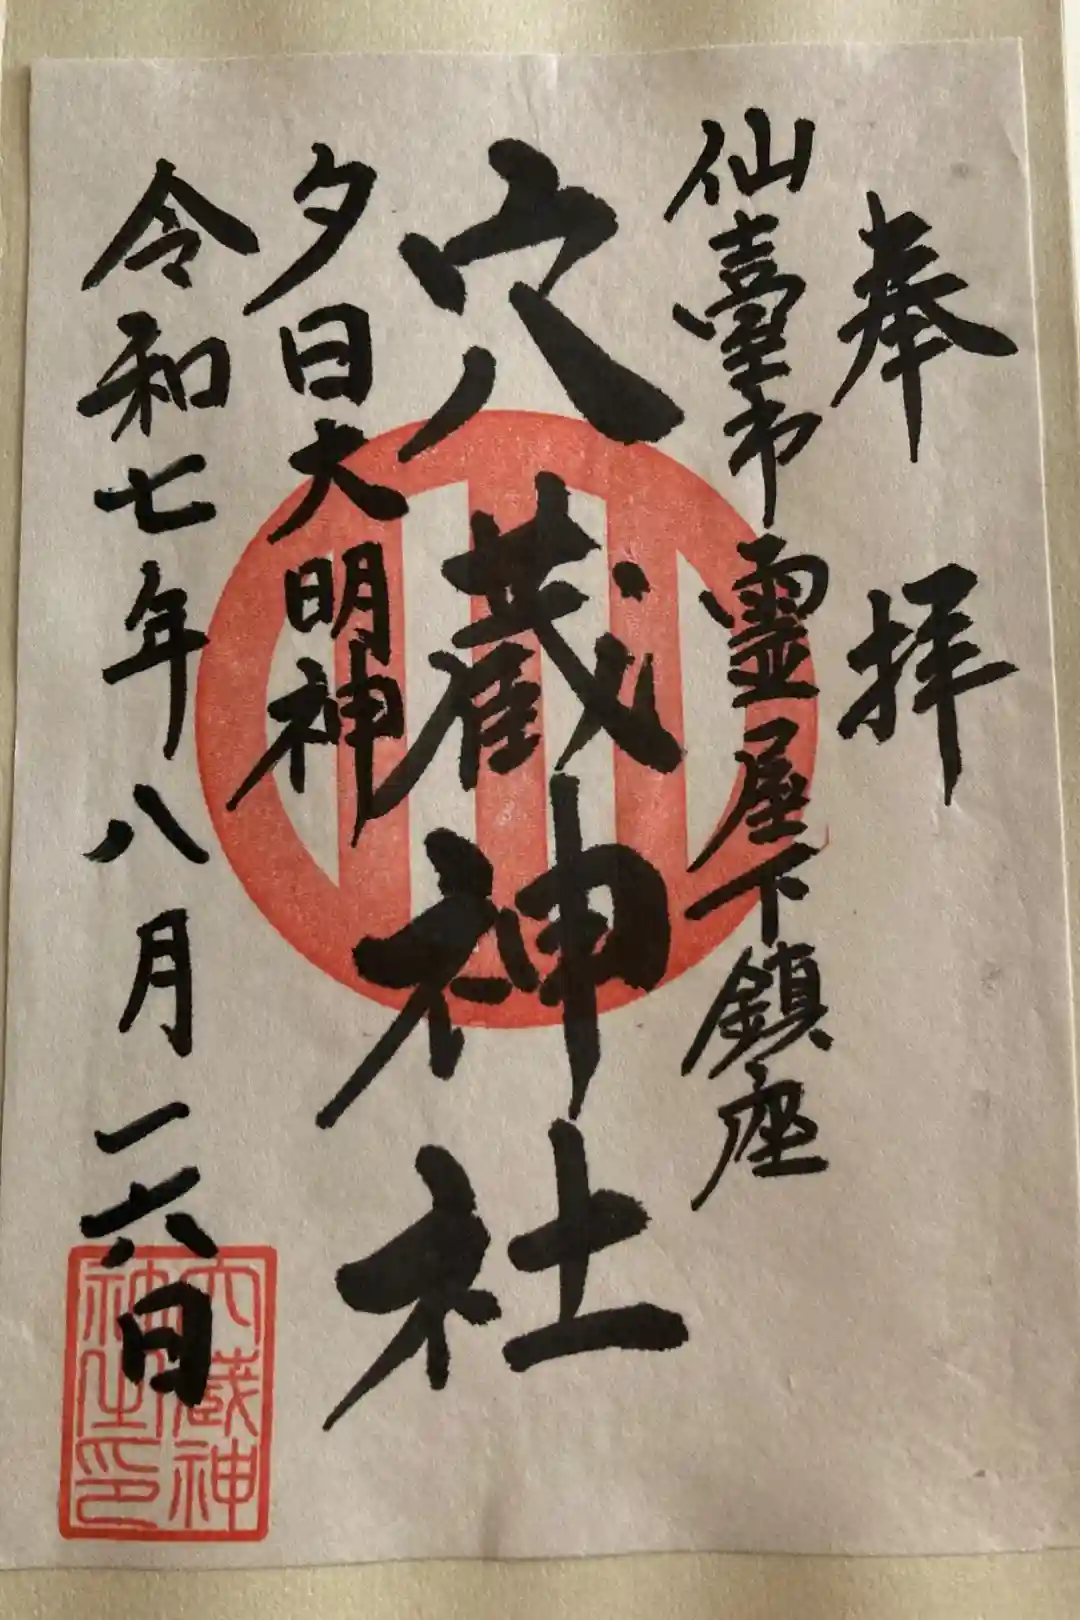 奉拝
仙臺市霊屋下鎮座
穴蔵神社
夕日大明神
令和七年八月一六日
穴蔵神
社之印